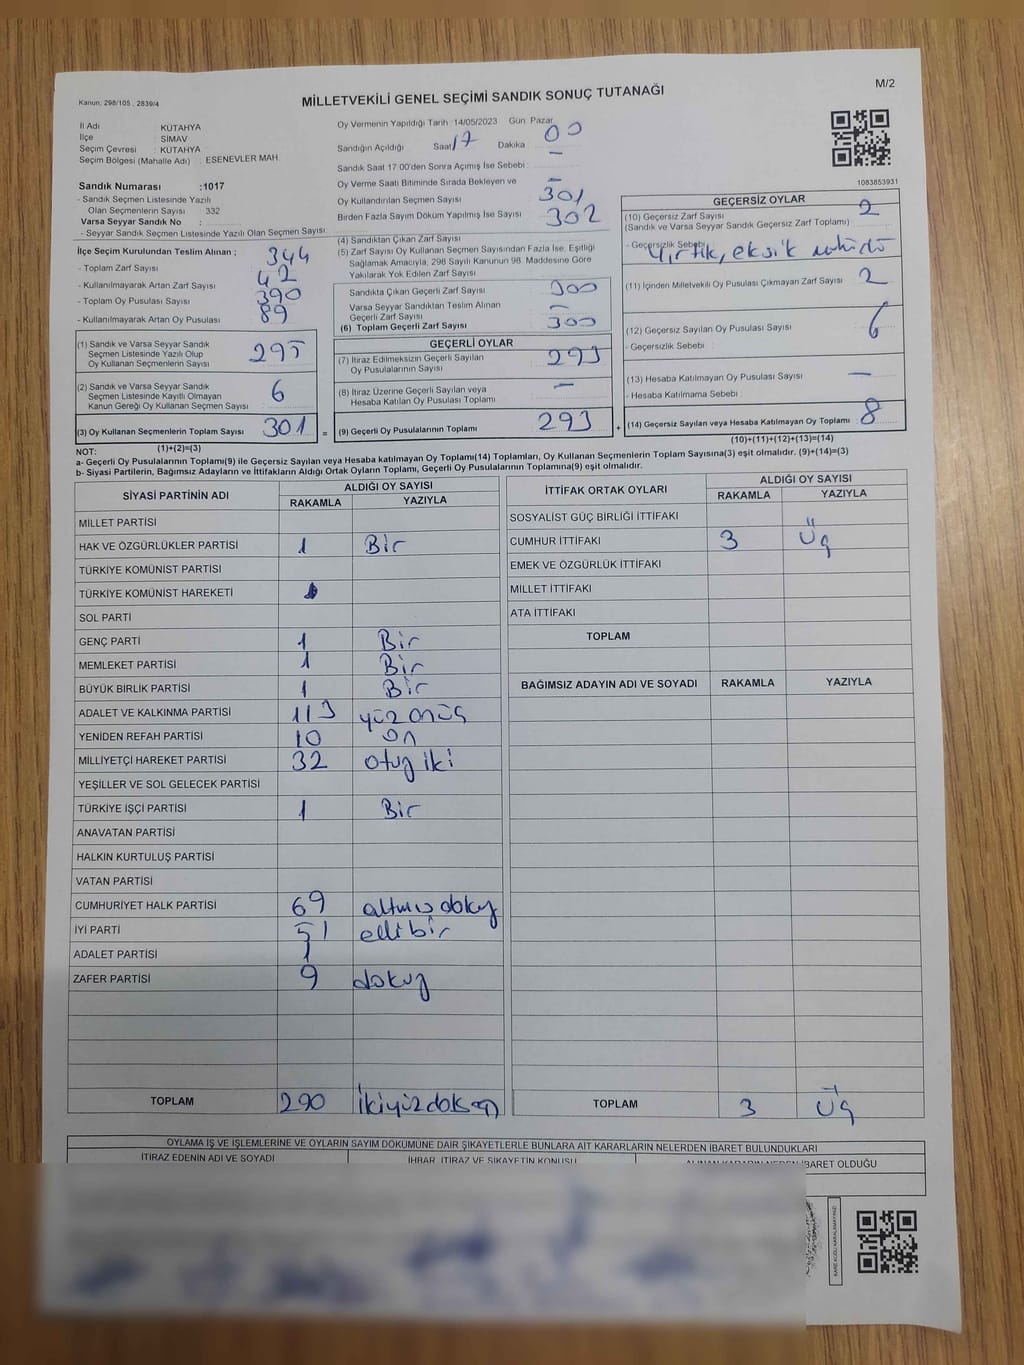 Kanun, 298/105 , 2839/4
MİLLETVEKİLİ GENEL SEÇİMİ SANDIK SONUÇ TUTANAĞI
M/2
İl Adı : KÜTAHYA
İlçe : SİMAV
Seçim Çevresi : KÜTAHYA
Seçim Bölgesi (Mahalle Adı) : ESENEVLER MAH.
Sandık Numarası :1017
- Sandık Seçmen Listesinde Yazılı
Olan Seçmenlerin Sayısı : 332
Varsa Seyyar Sandık No :
- Seyyar Sandık Seçmen Listesinde Yazılı Olan Seçmen Sayısı :
İlçe Seçim Kurulundan Teslim Alınan ;
- Toplam Zarf Sayısı 344
- Kullanılmayarak Artan Zarf Sayısı 42
- Toplam Oy Pusulası Sayısı 390
- Kullanılmayarak Artan Oy Pusulası 89
(1) Sandık ve Varsa Seyyar Sandık
Seçmen Listesinde Yazılı Olup
Oy Kullanan Seçmenlerin Sayısı 295
(2) Sandık ve Varsa Seyyar Sandık
Seçmen Listesinde Kayıtlı Olmayan
Kanun Gereği Oy Kullanan Seçmen Sayısı 6
(3) Oy Kullanan Seçmenlerin Toplam Sayısı 301
(1)+(2)=(3)
Oy Vermenin Yapıldığı Tarih : 14/05/2023 Gün Pazar
Sandığın Açıldığı Saat 17 Dakika 00
Sandık Saat 17:00'den Sonra Açımış İse Sebebi : –
Oy Verme Saati Bitiminde Sırada Bekleyen ve –
Oy Kullandırılan Seçmen Sayısı 301
Birden Fazla Sayım Döküm Yapılmış İse Sayısı 302
(4) Sandıktan Çıkan Zarf Sayısı
(5) Zarf Sayısı Oy Kullanan Seçmen Sayısından Fazla İse, Eşitliği
Sağlamak Amacıyla, 298 Sayılı Kanunun 98. Maddesine Göre
Yakılarak Yok Edilen Zarf Sayısı
Sandıkta Çıkan Geçerli Zarf Sayısı 300
Varsa Seyyar Sandıktan Teslim Alınan
Geçerli Zarf Sayısı –
(6) Toplam Geçerli Zarf Sayısı 300
GEÇERLİ OYLAR
(7) İtiraz Edilmeksizin Geçerli Sayılan
Oy Pusulalarının Sayısı 293
(8) İtiraz Üzerine Geçerli Sayılan veya
Hesaba Katılan Oy Pusulası Toplamı –
= (9) Geçerli Oy Pusulalarının Toplamı 293
1083853931
GEÇERSİZ OYLAR
(10) Geçersiz Zarf Sayısı 2
(Sandık ve Varsa Seyyar Sandık Geçersiz Zarf Toplamı)
- Geçersizlik Sebebi : Yırtık, eksik mühürlü
(11) İçinden Milletvekili Oy Pusulası Çıkmayan Zarf Sayısı 2
(12) Geçersiz Sayılan Oy Pusulası Sayısı 6
- Geçersizlik Sebebi :
(13) Hesaba Katılmayan Oy Pusulası Sayısı –
- Hesaba Katılmama Sebebi :
+ (14) Geçersiz Sayılan veya Hesaba Katılmayan Oy Toplamı 8
(10)+(11)+(12)+(13)=(14)
NOT:
a- Geçerli Oy Pusulalarının Toplamı(9) ile Geçersiz Sayılan veya Hesaba katılmayan Oy Toplamı(14) Toplamları, Oy Kullanan Seçmenlerin Toplam Sayısına(3) eşit olmalıdır. (9)+(14)=(3)
b- Siyasi Partilerin, Bağımsız Adayların ve İttifakların Aldığı Ortak Oyların Toplamı, Geçerli Oy Pusulalarının Toplamına(9) eşit olmalıdır.
SİYASİ PARTİNİN ADI ALDIĞI OY SAYISI
RAKAMLA YAZIYLA
MİLLET PARTİSİ
HAK VE ÖZGÜRLÜKLER PARTİSİ 1 Bir
TÜRKİYE KOMÜNİST PARTİSİ
TÜRKİYE KOMÜNİST HAREKETİ
SOL PARTİ
GENÇ PARTİ 1 Bir
MEMLEKET PARTİSİ 1 Bir
BÜYÜK BİRLİK PARTİSİ 1 Bir
ADALET VE KALKINMA PARTİSİ 113 yüz onüç
YENİDEN REFAH PARTİSİ 10 on
MİLLİYETÇİ HAREKET PARTİSİ 32 otuz iki
YEŞİLLER VE SOL GELECEK PARTİSİ
TÜRKİYE İŞÇİ PARTİSİ 1 Bir
ANAVATAN PARTİSİ
HALKIN KURTULUŞ PARTİSİ
VATAN PARTİSİ
CUMHURİYET HALK PARTİSİ 69 altmış dokuz
İYİ PARTİ 51 elli bir
ADALET PARTİSİ 1
ZAFER PARTİSİ 9 dokuz
TOPLAM 290 İkiyüzdoksan
İTTİFAK ORTAK OYLARI ALDIĞI OY SAYISI
RAKAMLA YAZIYLA
SOSYALİST GÜÇ BİRLİĞİ İTTİFAKI
CUMHUR İTTİFAKI 3 Üç
EMEK VE ÖZGÜRLÜK İTTİFAKI
MİLLET İTTİFAKI
ATA İTTİFAKI
TOPLAM
BAĞIMSIZ ADAYIN ADI VE SOYADI RAKAMLA YAZIYLA
TOPLAM 3 Üç
OYLAMA İŞ VE İŞLEMLERİNE VE OYLARIN SAYIM DÖKÜMÜNE DAİR ŞİKAYETLERLE BUNLARA AİT KARARLARIN NELERDEN İBARET BULUNDUKLARI
İTİRAZ EDENİN ADI VE SOYADI İHBAR, İTİRAZ VE ŞİKAYETİN KONUSU ALINAN KARARIN NEDEN İBARET OLDUĞU